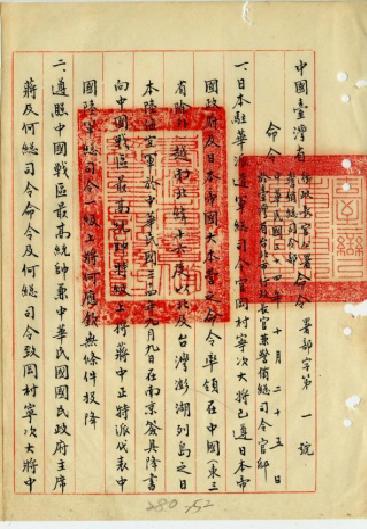 中國臺灣省行政長官公署命令 署部字第一號
警備總司令部
命令 中華民國三十四年十月二十五日
於臺灣省台北市行政長官兼警備總司令官邸
一、日本駐華派遣軍總司令官岡村寧次大將已遵日本帝
國政府及日本帝國大本營之命令率領在中國(東三
省除外)越南北緯十六度以北及台灣澎湖列島之日
本陸海空軍於中華民國三十四年九月九日在南京簽具降書
向中國戰區最高統帥特級上將蔣中正特派代表中
國陸軍總司令一級上將何應欽無條件投降
二、遵照中國戰區最高統帥兼中華民國國民政府主席
蔣及何總司令命令及何總司令致岡村寧次大將中
280 252